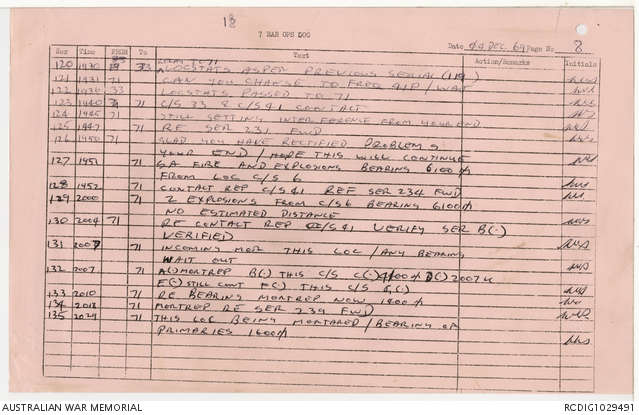 18
7 RAR OPS LOG
Date 04 DEC 69 Page No 8
Ser Time FROM To Text Action/Remarks Initials
120 1430 33 LOCSTATS AS PER PREVIOUS SERIAL (119)
121 1431 71 CAN YOU CHANGE TO FREQ /WAIT
122 1436 33 LOCSTATS PASSED TO 71
123 1440 71 C/S 33 & C/S 41 CONTACT
124 1445 71 STILL GETTING INTERFERENCE FROM YOUR END
125 1447 71 RE SER 231 FWD
126 1450 71 GLAD YOU HAVE RECTIFIED PROBLEM @
YOUR END / HOPE THIS WILL CONTINUE
127 1451 71 SA FIRE AND EXPLOSIONS BEARING 6100
FROM LOC C/S 6
128 1452 71 CONTACT REP C/S 41 REF SER 234 FWD
129 2000 71 2 EXPLOSIONS FROM C/S 6 BEARING 6100
NO ESTIMATED DISTANCE
130 2004 71 RE CONTACT REP C/S 41 VERIFY SER B(.)
VERIFIED
131 2007 71 INCOMING MOR THIS LOC / ANY BEARING
WAIT OUT
132 2007 71 A(.) MORTREP B(.) THIS C/S C(.) D(.) 2007
E(.) STILL CONT F(.) THIS C/S
133 2010 71 RE BEARING MORTREP NOW 1400
134 2018 71 MORTREP RE SER 239 FWD
135 2024 71 THIS LOC BEING MORTARED / BEARING OF
PRIMARIES 1600
AUSTRALIAN WAR MEMORIAL
RCDIG1029491